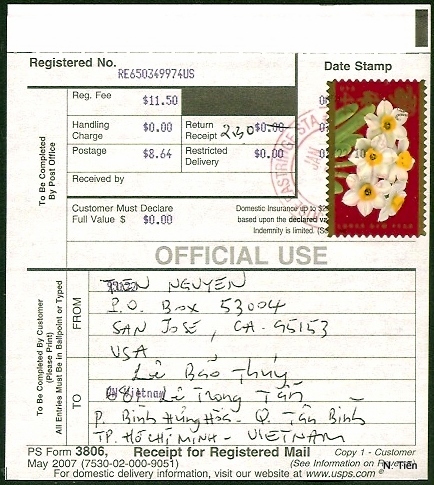 Registered No.
RE650349974US
Date Stamp
To Be Completed
By Post Office
Reg. Fee
$11.50
Handling
Charge
$0.00
Return
Receipt
2.30
$0.00
Postage
$8.64
Restricted
Delivery
$0.00
Received by
Customer Must Declare
Full Value $
$0.00
Domestic Insurance up to $2
based upon the declared va
Indemnity is limited. (Se
OFFICIAL USE
To Be Completed by Customer
(Please Print)
All Entries Must Be in Ballpoint or Typed
FROM
TIEN NGUYEN
P.O. BOX 53004
SAN JOSE, CA-95153
USA
TO
Lê Bảo Thúy
Lê Trọng Tấn
P. Bình Hưng Hòa - Q. Tân Bình
TP. HỒ CHÍ MINH - VIETNAM
PS Form 3806, Receipt for Registered Mail
Copy 1 - Customer
May 2007 (7530-02-000-9051)
(See Information on Reverse)
For domestic delivery information, visit our website at www.usps.com
N. Tiến